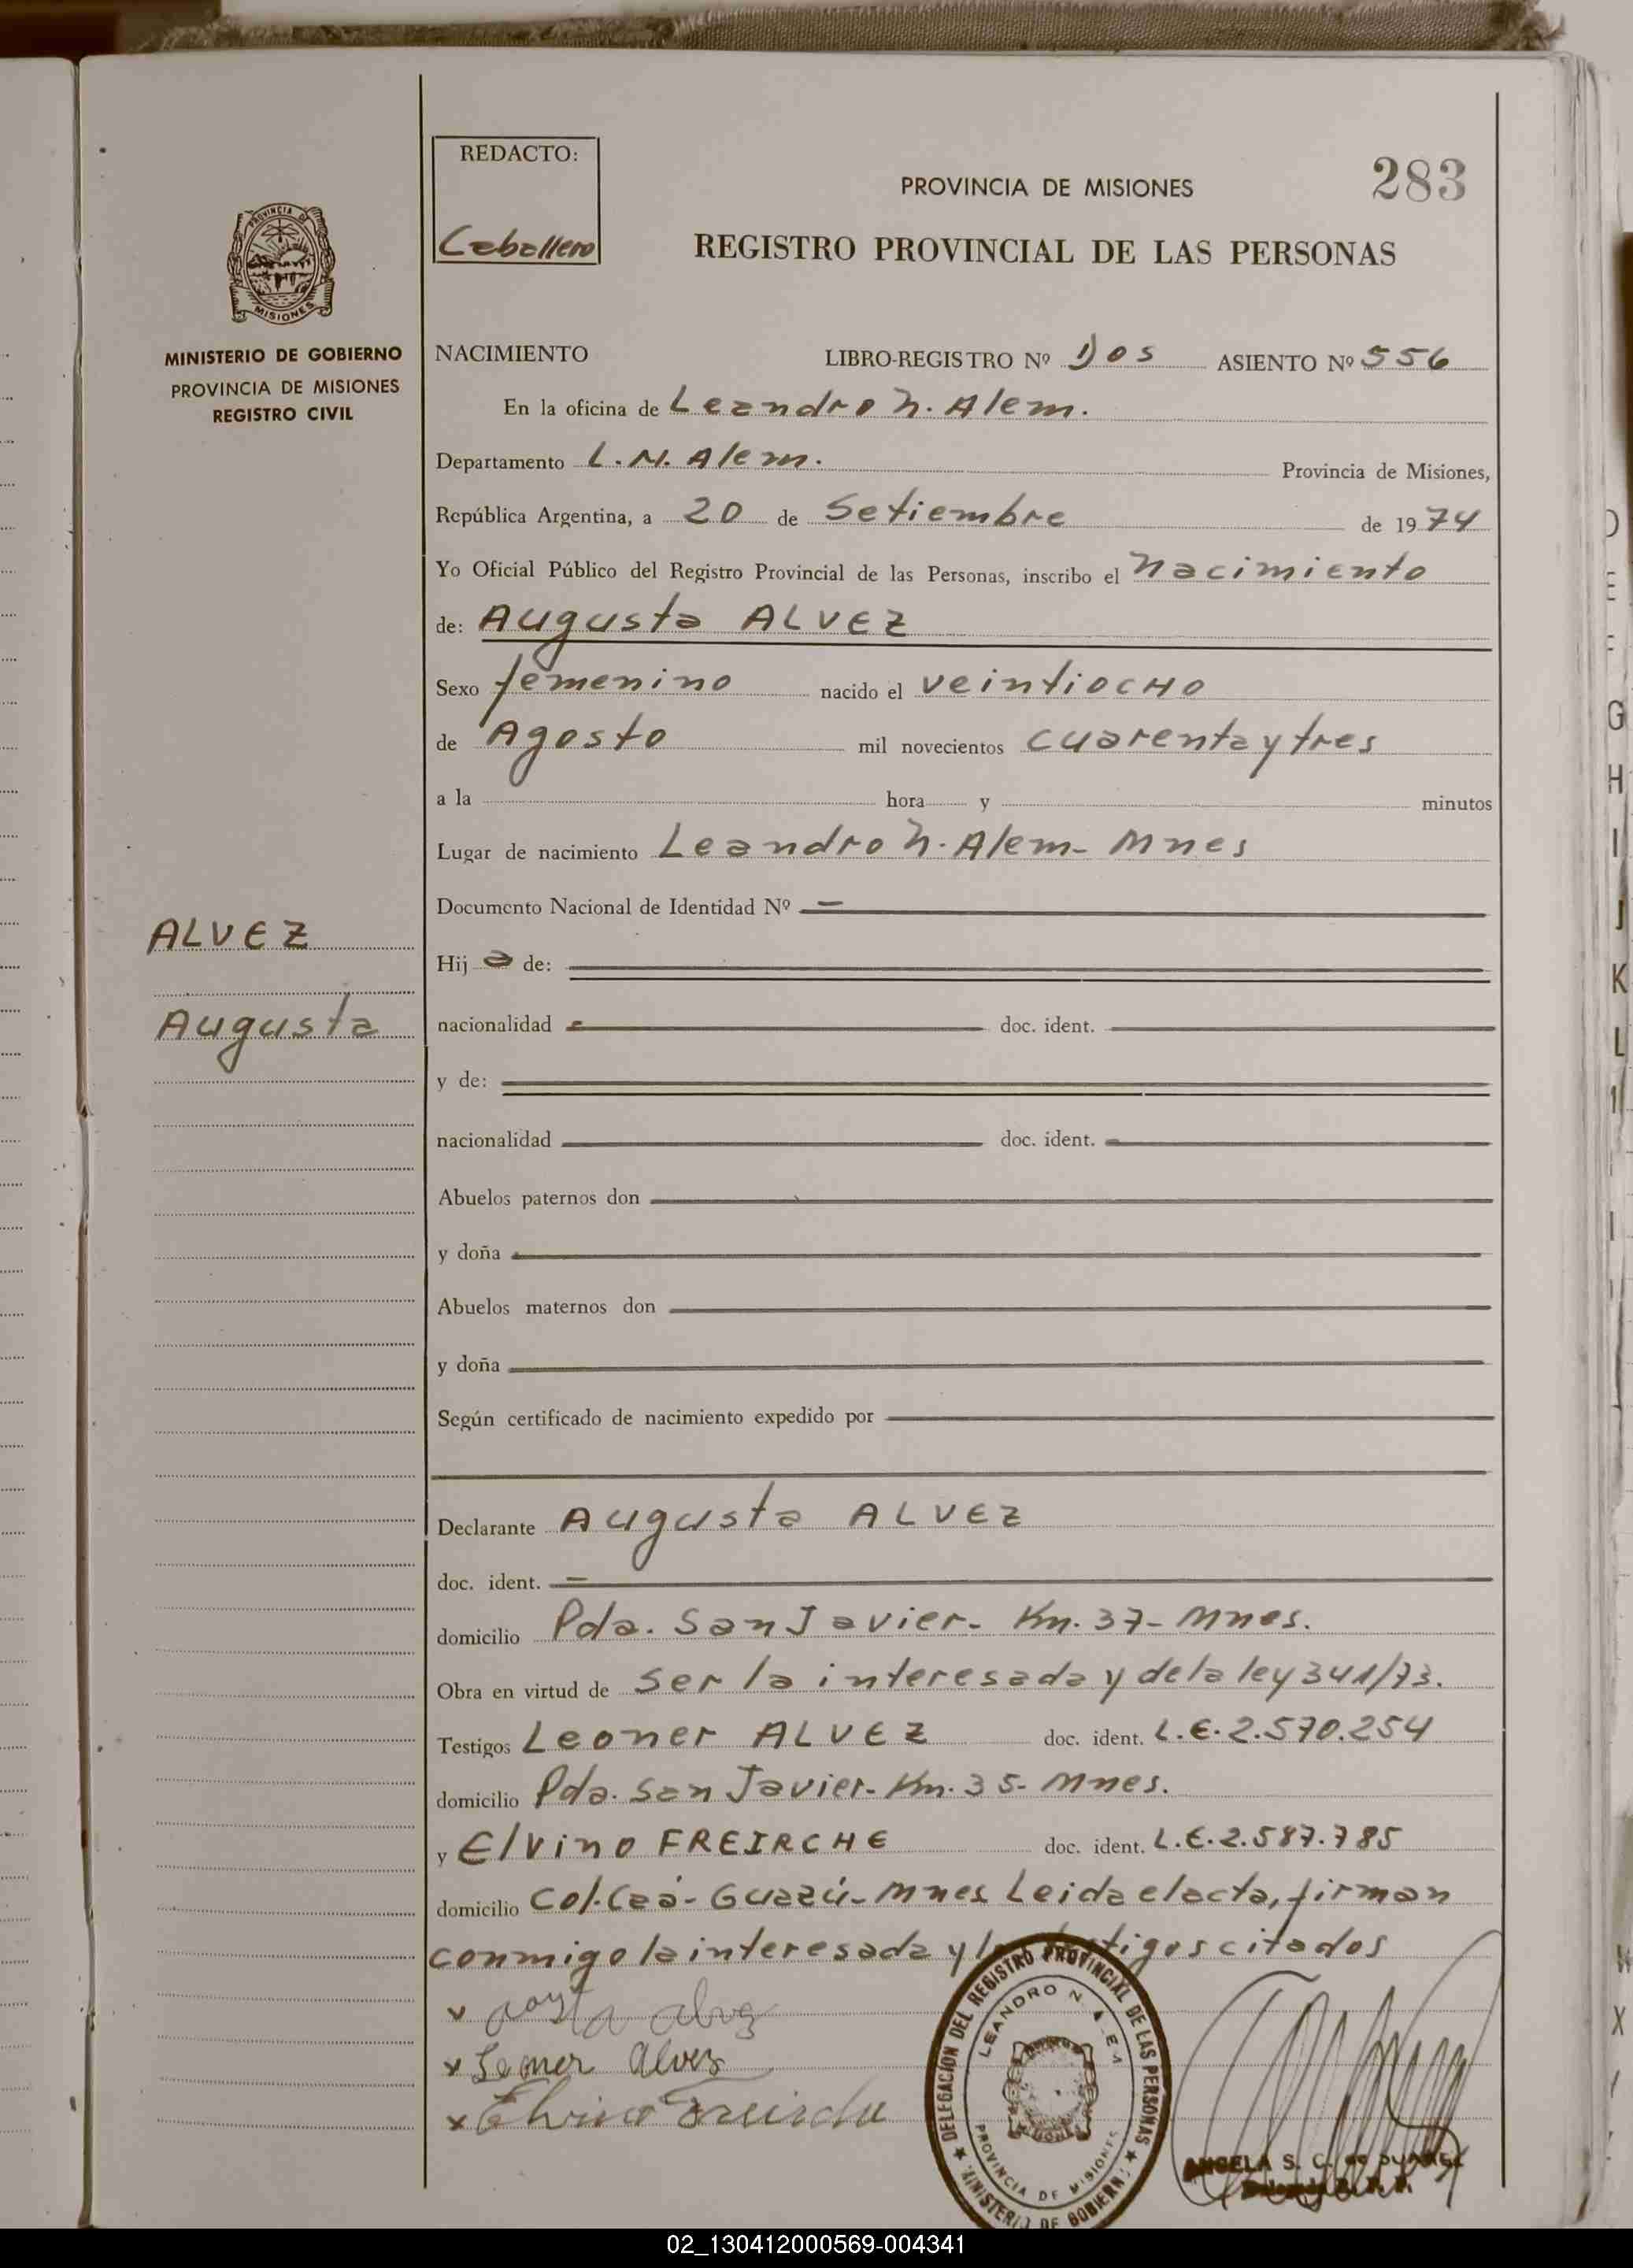 REDACTO:
Caballero
PROVINCIA DE MISIONES
283
REGISTRO PROVINCIAL DE LAS PERSONAS
PROVINCIA DE
MISIONES
MINISTERIO DE GOBIERNO
PROVINCIA DE MISIONES
REGISTRO CIVIL
NACIMIENTO LIBRO-REGISTRO Nº Dos ASIENTO Nº 556
En la oficina de Leandro N. Alem.
Departamento L. N. Alem. Provincia de Misiones,
República Argentina, a 20 de Setiembre de 1974
Yo Oficial Público del Registro Provincial de las Personas, inscribo el nacimiento
de: Augusta ALVEZ
Sexo femenino nacido el veintiocho
de Agosto mil novecientos cuarenta y tres
a la hora y minutos
Lugar de nacimiento Leandro N. Alem - Mnes
Documento Nacional de Identidad Nº —
ALVEZ
Hij a de:
Augusta
nacionalidad doc. ident.
y de:
nacionalidad doc. ident.
Abuelos paternos don
y doña
Abuelos maternos don
y doña
Según certificado de nacimiento expedido por
Declarante Augusta ALVEZ
doc. ident. —
domicilio Pda. San Javier - Km. 37 - Mnes.
Obra en virtud de ser la interesada y de la ley 341/73.
Testigos Leoner ALVEZ doc. ident. L.E. 2.570.254
domicilio Pda. San Javier - Km. 35 - Mnes.
y Elvino FREIRCHE doc. ident. L.E. 2.587.785
domicilio Col. Caá - Guazú - Mnes Leida el acta, firman
conmigo la interesada y los testigos citados
x alvez
x Leoner alvez
x Elvino
DELEGACION DEL REGISTRO PROVINCIAL DE LAS PERSONAS
LEANDRO N. ALEM
PROVINCIA DE MISIONES
MINISTERIO DE GOBIERNO
ANGELA S. C. de
02_130412000569-004341